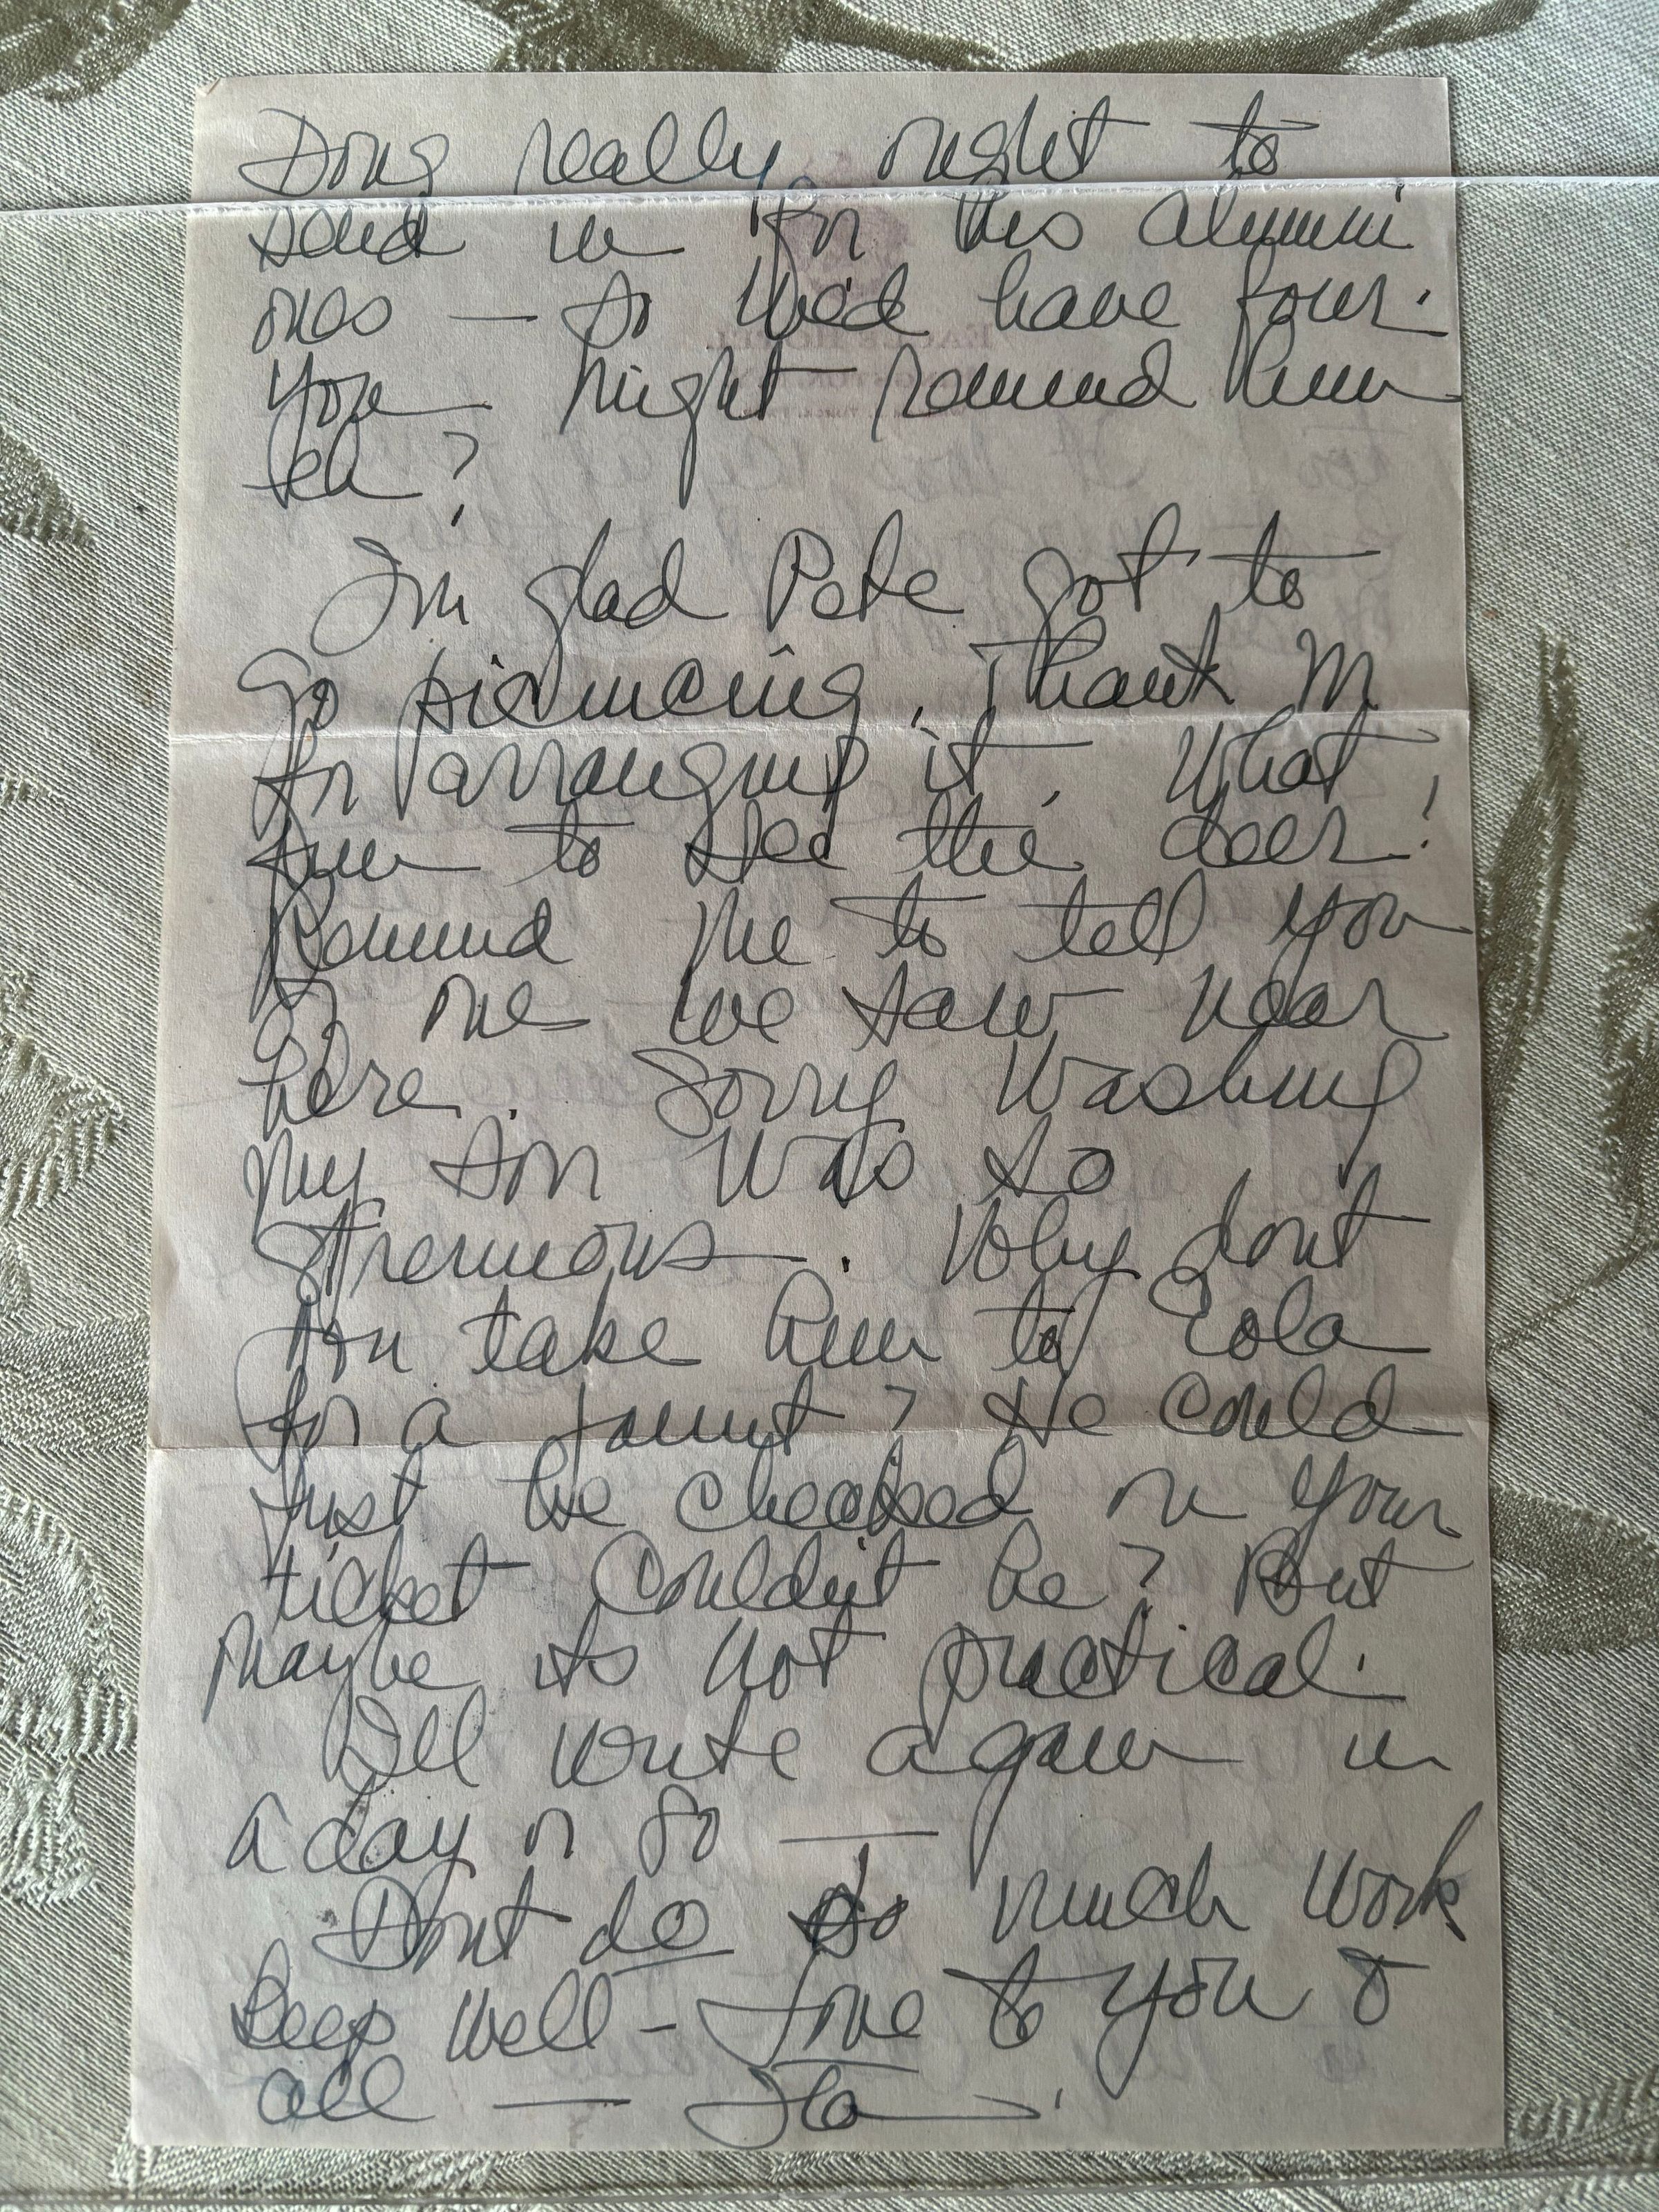 Doug really ought to
send in for his alumni
ones — so we'd have four.
You might remind him
eh?
I'm glad Pete got to
go picnicing. Thank M
for arranging it. What
fun to see the deer!
Remind me to tell you
of one we saw near
here. Sorry washing
my son was so
strenuous. Why dont
you take him to Eola
for a jaunt? He could
just be checked on your
ticket couldn't he? But
maybe its not practical.
I'll write again in
a day or so —
Dont do so much work
Keep well - Love to you &
all — Flo.